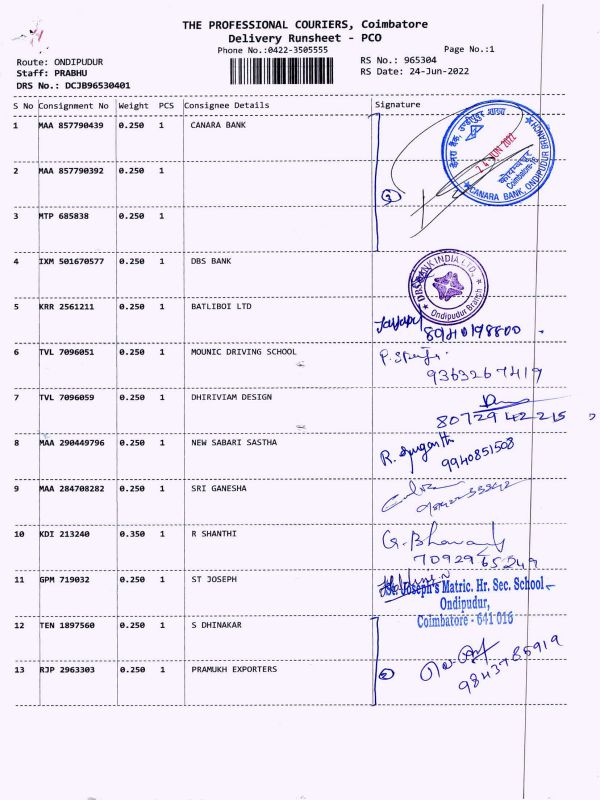 THE PROFESSIONAL COURIERS, Coimbatore
Delivery Runsheet - PCO
Phone No.:0422-3505555
Page No.:1
Route: ONDIPUDUR
RS No.: 965304
Staff: PRABHU
RS Date: 24-Jun-2022
DRS No.: DCJB96530401
S No Consignment No Weight PCS Consignee Details Signature
1 MAA 857790439 0.250 1 CANARA BANK
केनरा बैंक
14 JUN 2022
कोयम्बत्तूर
Coimbatore
CANARA BANK, ONDIPUDUR BRANCH
2 MAA 857790392 0.250 1
3
3 MTP 685838 0.250 1
4 IXM 501670577 0.250 1 DBS BANK
DBS BANK INDIA LTD.,
Ondipudur Branch
5 KRR 2561211 0.250 1 BATLIBOI LTD
6 TVL 7096051 0.250 1 MOUNIC DRIVING SCHOOL
9363267419
7 TVL 7096059 0.250 1 DHIRIVIAM DESIGN
8072942215
8 MAA 290449796 0.250 1 NEW SABARI SASTHA
9940851508
9 MAA 284708282 0.250 1 SRI GANESHA
10 KDI 213240 0.350 1 R SHANTHI
7092965549
11 GPM 719032 0.250 1 ST JOSEPH
St. Joseph's Matric. Hr. Sec. School
Ondipudur,
Coimbatore - 641 016
12 TEN 1897560 0.250 1 S DHINAKAR
13 RJP 2963303 0.250 1 PRAMUKH EXPORTERS
2
9843785919